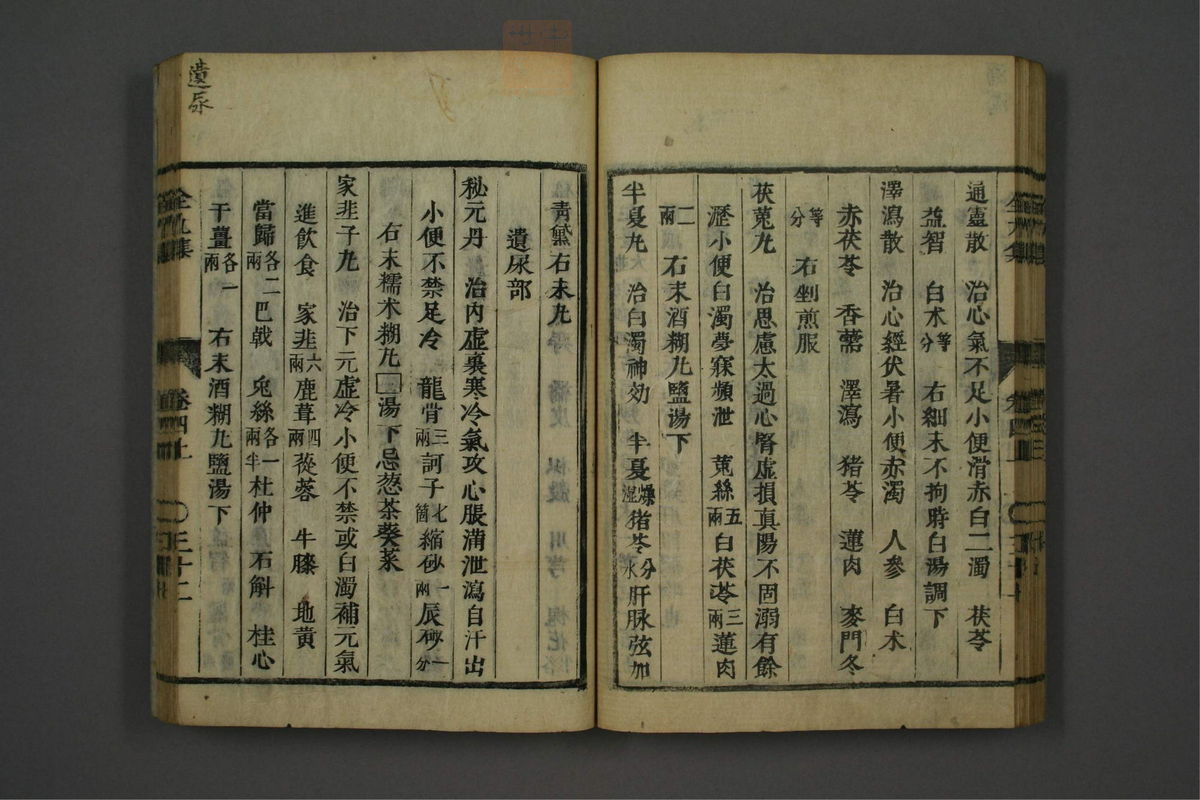 通靈散　治心氣不足小便滑赤白二濁　茯苓
益智　白朮等分　右細末不拘時白湯調下
澤瀉散　治心經伏暑小便赤濁　人參　白朮
赤茯苓　香薷　澤瀉　猪苓　蓮肉　麥門冬
等分　右剉煎服
茯菟丸　治思慮太過心腎虛損真陽不固溺有餘
瀝小便白濁夢寐頻泄　菟絲五兩　白茯苓三兩　蓮肉
二兩　右末酒糊丸鹽湯下
半夏丸　治白濁神効　半夏燥湿　猪苓分水　肝脉弦加
青黛右末丸
遺尿部
秘元丹　治内虛裏寒冷氣攻心脹満泄瀉自汗出
小便不禁足冷　龍骨三兩　訶子七箇　縮砂一兩　辰砂一分
右末糯米糊丸　湯下忌葱茶葵菜
家韭子丸　治下元虛冷小便不禁或白濁補元氣
進飲食　家韭六兩　鹿茸四兩　蓯蓉　牛膝　地黄
當歸各二兩　巴戟　兎絲各一兩半　杜仲　石斛　桂心
干薑各一兩　右末酒糊丸鹽湯下
全九集
卷四上
三十二
遺尿